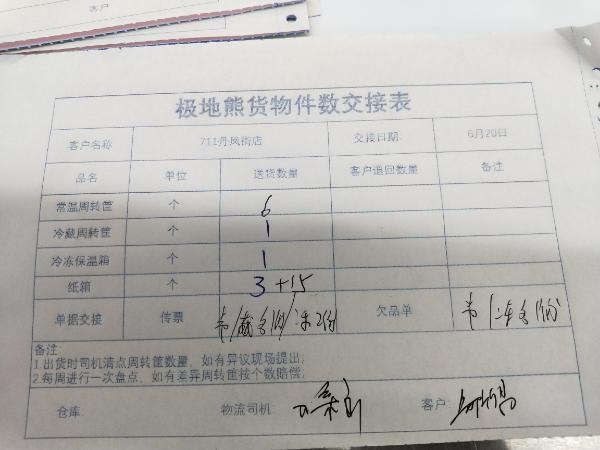 客户
极地熊货物件数交接表
客户名称 711丹凤街店 交接日期: 6月20日
品名 单位 送货数量 客户退回数量 备注
常温周转筐 个 6
冷藏周转筐 个 1
冷冻保温箱 个 1
纸箱 个 3+15
单据交接 传票 欠品单
备注:
1.出货时司机清点周转筐数量，如有异议现场提出;
2.每周进行一次盘点，如有差异周转筐按个数赔偿;
仓库: 物流司机: 客户: